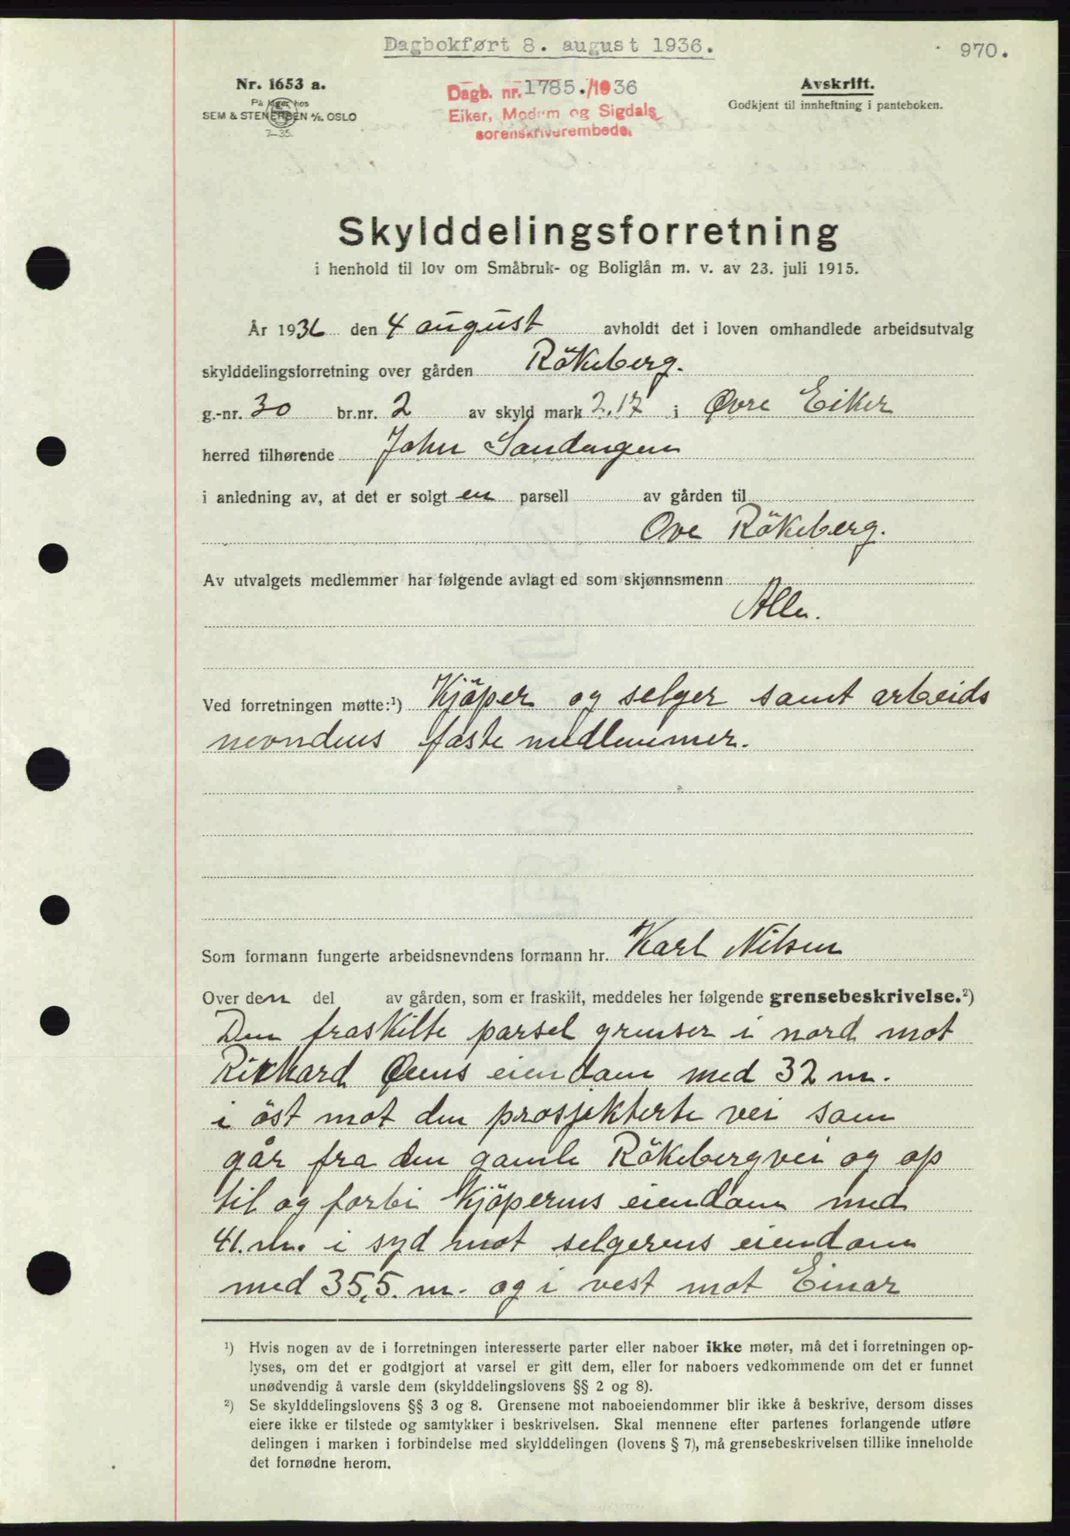 Dagbokført 8. august 1936.
970.
Nr. 1653 a.
På lager hos
SEM & STENERSEN A/S, OSLO
7-35.
Dagb. nr. 1785./1936
Eiker, Modum og Sigdals
sorenskriverembede.
Avskrift.
Godkjent til innheftning i panteboken.
Skylddelingsforretning
i henhold til lov om Småbruk- og Boliglån m. v. av 23. juli 1915.
År 1936 den 4 august avholdt det i loven omhandlede arbeidsutvalg
skylddelingsforretning over gården Rökeberg.
g.-nr. 30 br.nr. 2 av skyld mark 2.17 i Øvre Eiker
herred tilhørende John Sandungen
i anledning av, at det er solgt en parsell av gården til
Ove Rökeberg.
Av utvalgets medlemmer har følgende avlagt ed som skjønnsmenn
Alle.
Ved forretningen møtte:¹) Kjöper og selger samt arbeids
nevndens faste medlemmer.
Som formann fungerte arbeidsnevndens formann hr. Karl Nilsen
Over den del av gården, som er fraskilt, meddeles her følgende grensebeskrivelse.²)
Den fraskilte parsel grenser i nord mot
Rikhard eiendam med 32 m.
i öst mot den prosjekterte vei som
går fra den gamle Rökebergvei og op
til og forbi Kjöperens eiendom med
41. m. i syd mot selgerens eiendom
med 35,5. m. og i vest mot Einar
¹) Hvis nogen av de i forretningen interesserte parter eller naboer ikke møter, må det i forretningen op-
lyses, om det er godtgjort at varsel er gitt dem, eller for naboers vedkommende om det er funnet
unødvendig å varsle dem (skylddelingslovens §§ 2 og 8).
²) Se skylddelingslovens §§ 3 og 8. Grensene mot naboeiendommer blir ikke å beskrive, dersom disses
eiere ikke er tilstede og samtykker i beskrivelsen. Skal mennene efter partenes forlangende utføre
delingen i marken i forbindelse med skylddelingen (lovens § 7), må grensebeskrivelsen tillike inneholde
det fornødne herom.